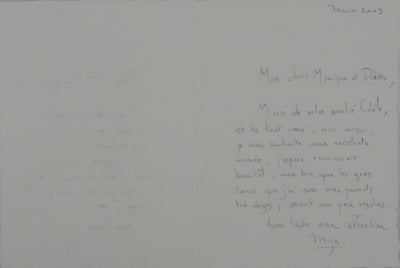 Janvier 2003
Mes chers Monique et Didier,
Merci de votre amitié fidèle,
et de tout cœur, moi aussi,
je vous souhaite une excellente
année, j'espère vous revoir
bientôt, une fois que les gros
soucis que j'ai avec mes parents
très âgés, seront un peu résolus.
Avec toute mon affection